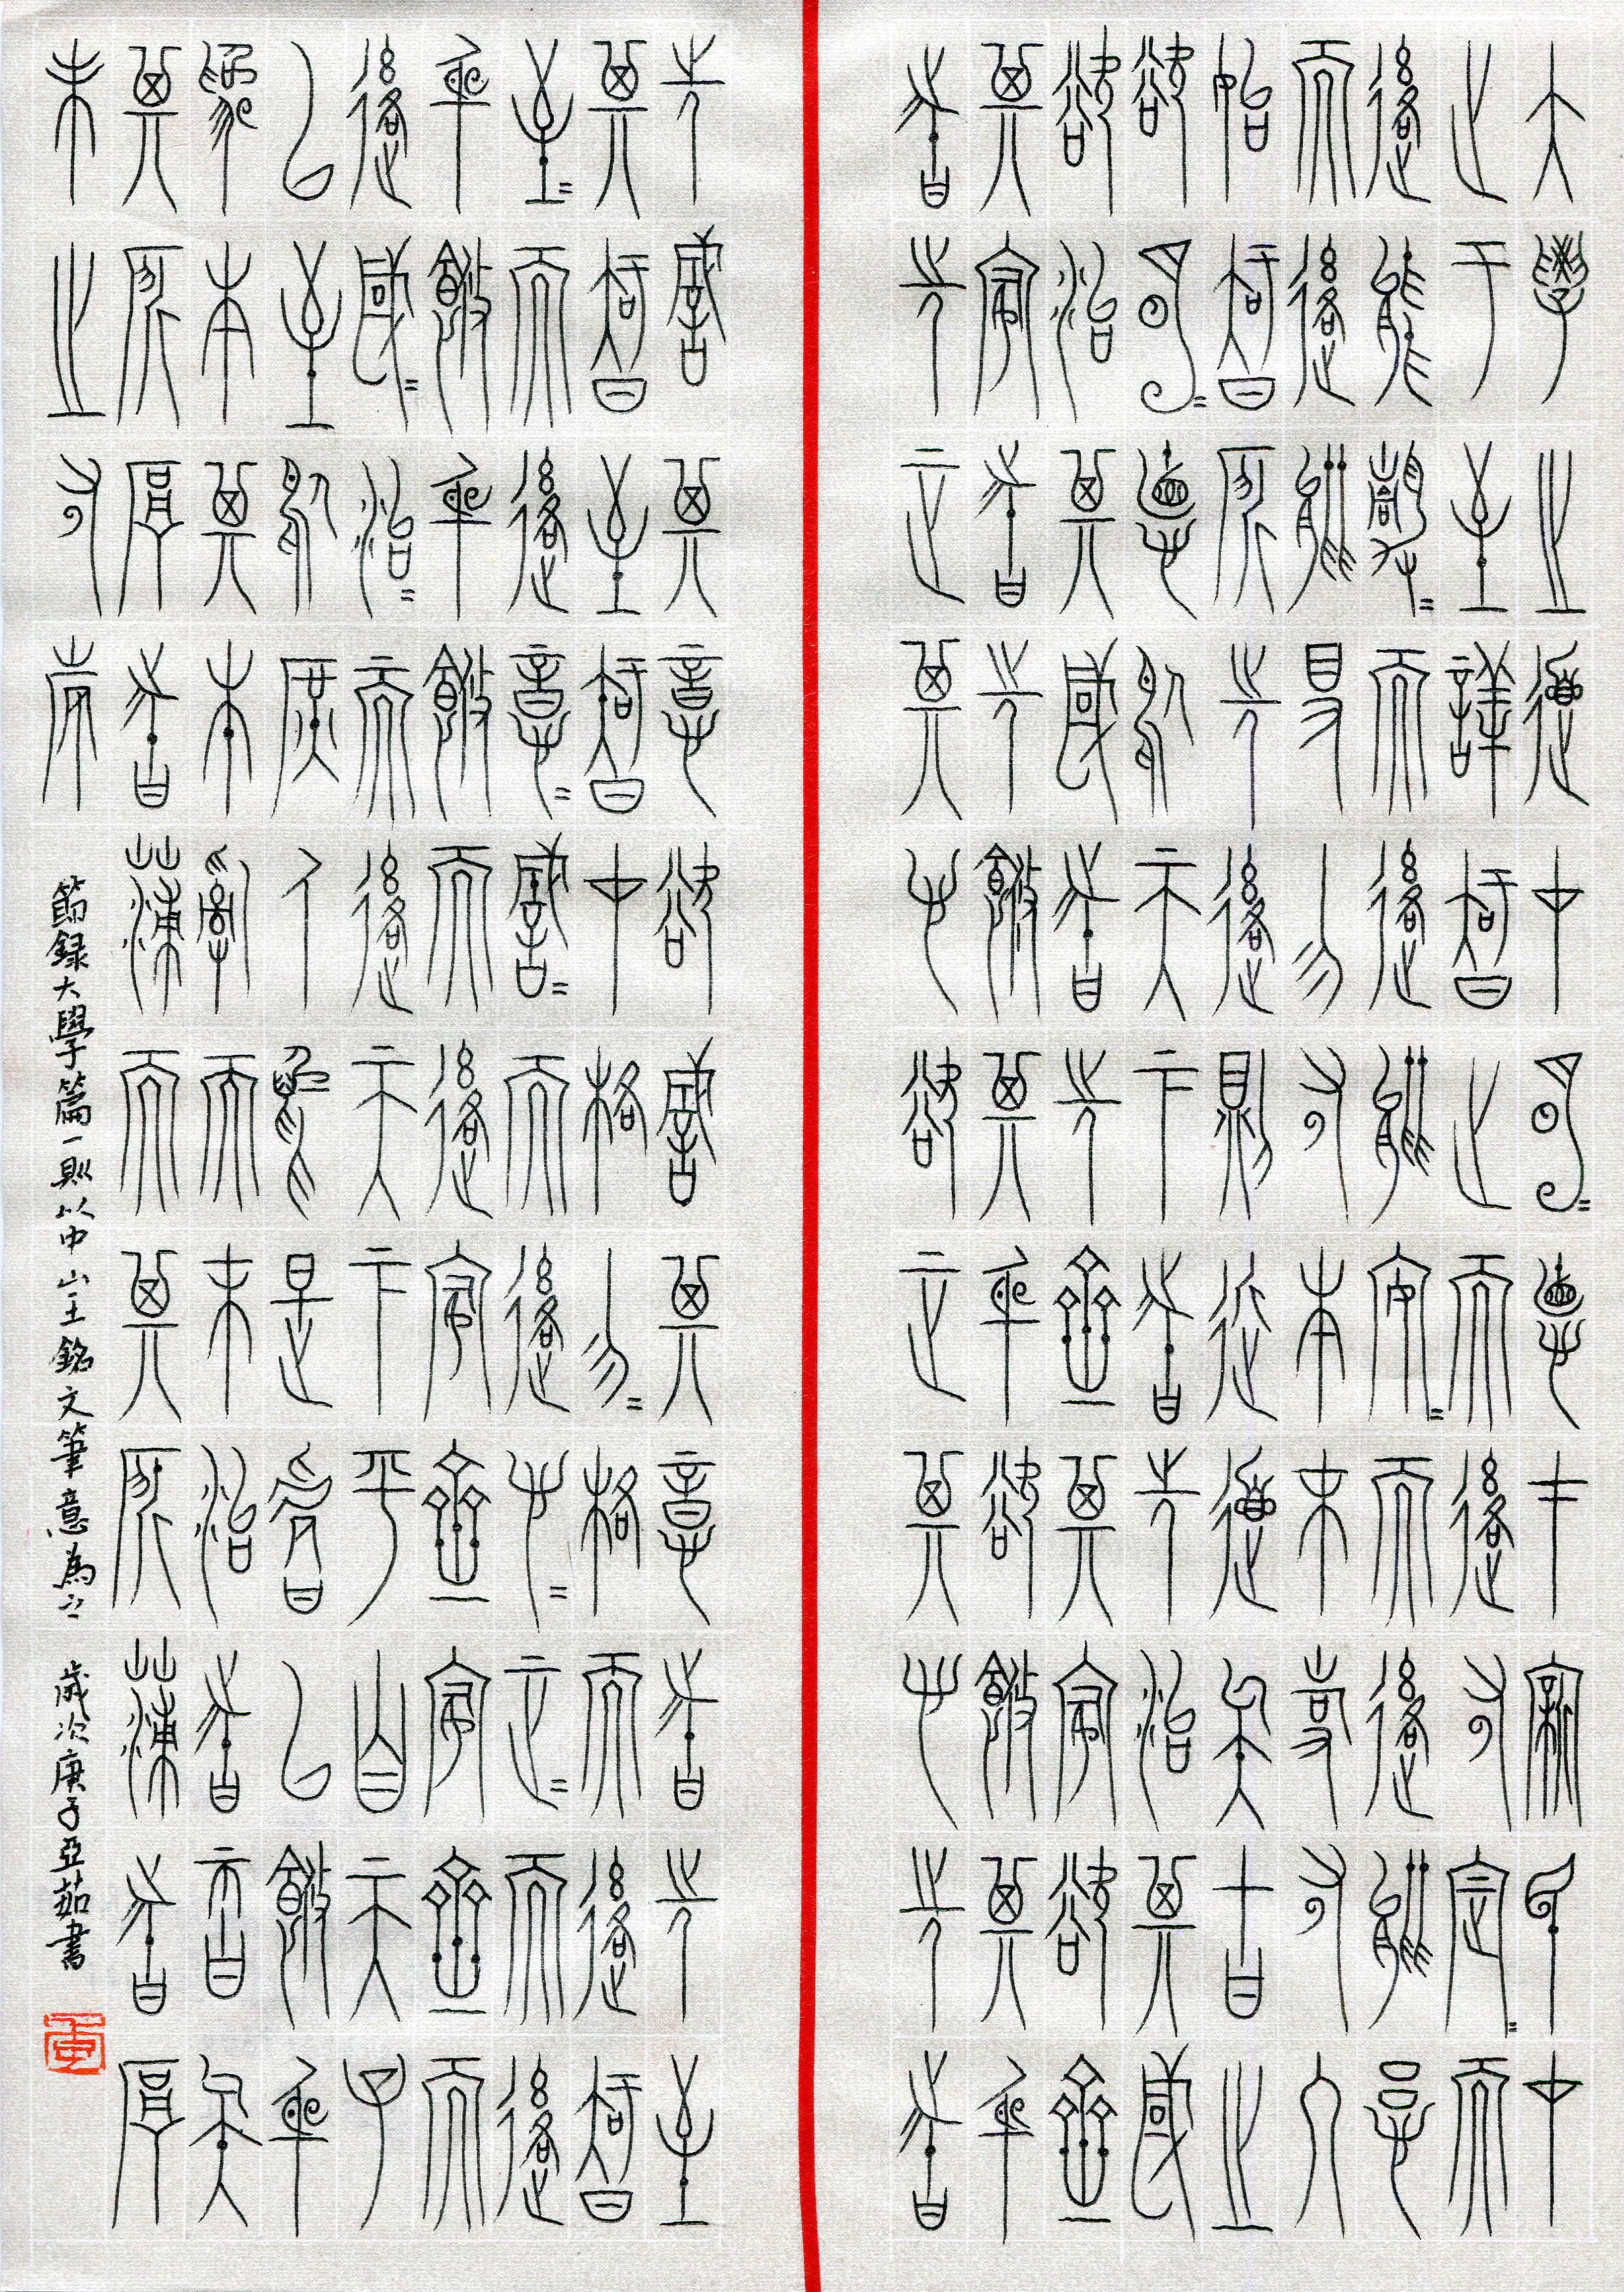 大學之道在明=德在新民在
止于至善知止而後有定=而
後能靜=而後能安=而後能慮=
而後能得物有本末事有終
始知所先後則近道矣古之
欲明=德於天下者先治其國
欲治其國者先齊其家欲齊
其家者先修其身欲修其身
者先正其心欲正其心先者
先誠其意欲誠其意者先至
其知至知在格物=格而後知
至=而後意=誠=而後心=正=而後
身修身修而後家齊家齊而
後國=治=而後天下平自天子
以至於庶人壹是皆以修身
為本其本亂而末治者否矣
其所厚者薄而其所薄者厚
未之有也
節録大學篇一則以中山王銘文筆意為之 歲次庚子亞茹書